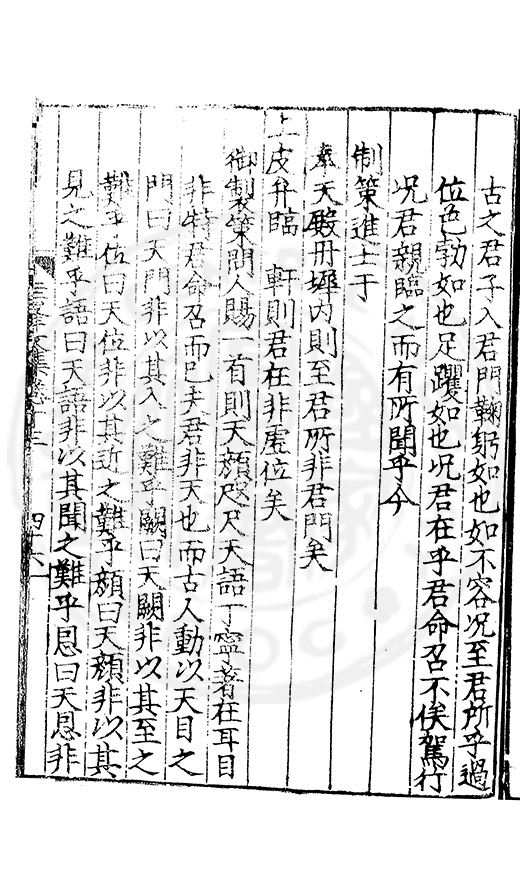 古之君子入君門鞠躬如也如不容况至君所乎過
位色勃如也足躩如也况君在乎君命召不俟駕行
况君親臨之而有所聞乎今
制策進士于
奉天殿丹墀内則至君所非君門矣
上皮弁臨　軒則君在非虛位矣
御製策問人賜一首則天顔咫尺天語丁寧著在耳目
非特君命召而已夫君非天也而古人動以天目之
門曰天門非以其入之難乎闕曰天闕非以其至之
難乎位曰天位非以其近之難乎顔曰天顔非以其
見之難乎語曰天語非以其聞之難乎恩曰天恩非
文集卷十三　四十六